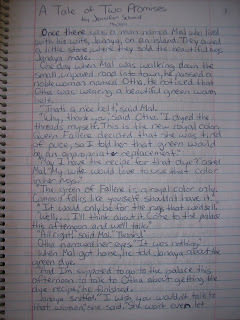 A Tale of Two Promises
by Jennifer
Once there was a man named Mal who lived
with his wife, Janaya, on an island. They owned
a little store where they sold the beautiful rugs
Janaya made.
One day when Mal was walking down the
small, unpaved road into town, he passed a
noblewoman named Otha. He noticed that
Otha was wearing a beautiful green worn
belt.
"That's a nice belt," said Mal.
"Why, thank you," said Otha. "I dyed the
threads myself. This is the new royal color.
Queen Fallene decided that she was tired
of puce, so I told her that green would
be an appropriate replacement."
"May I have the recipe for that dye?" asked
Mal. "My wife would love to use that color
in her rugs."
"The green of Fallene is a royal color only.
Common folks like yourself shouldn't have it."
"It would only be for the rugs that we'd sell."
"Well... I'll think about it. Come to the palace
this afternoon and we'll talk."
"All right," said Mal. "Thanks!"
Otha narrowed her eyes. "It was nothing."
When Mal got home, he told Janaya about the
green dye.
"And I'm supposed to go to the palace this
afternoon to talk to Otha about getting the
dye recipe," he finished.
Janaya snorted. "I wish you wouldn't talk to
that woman," she said. "She won't even let